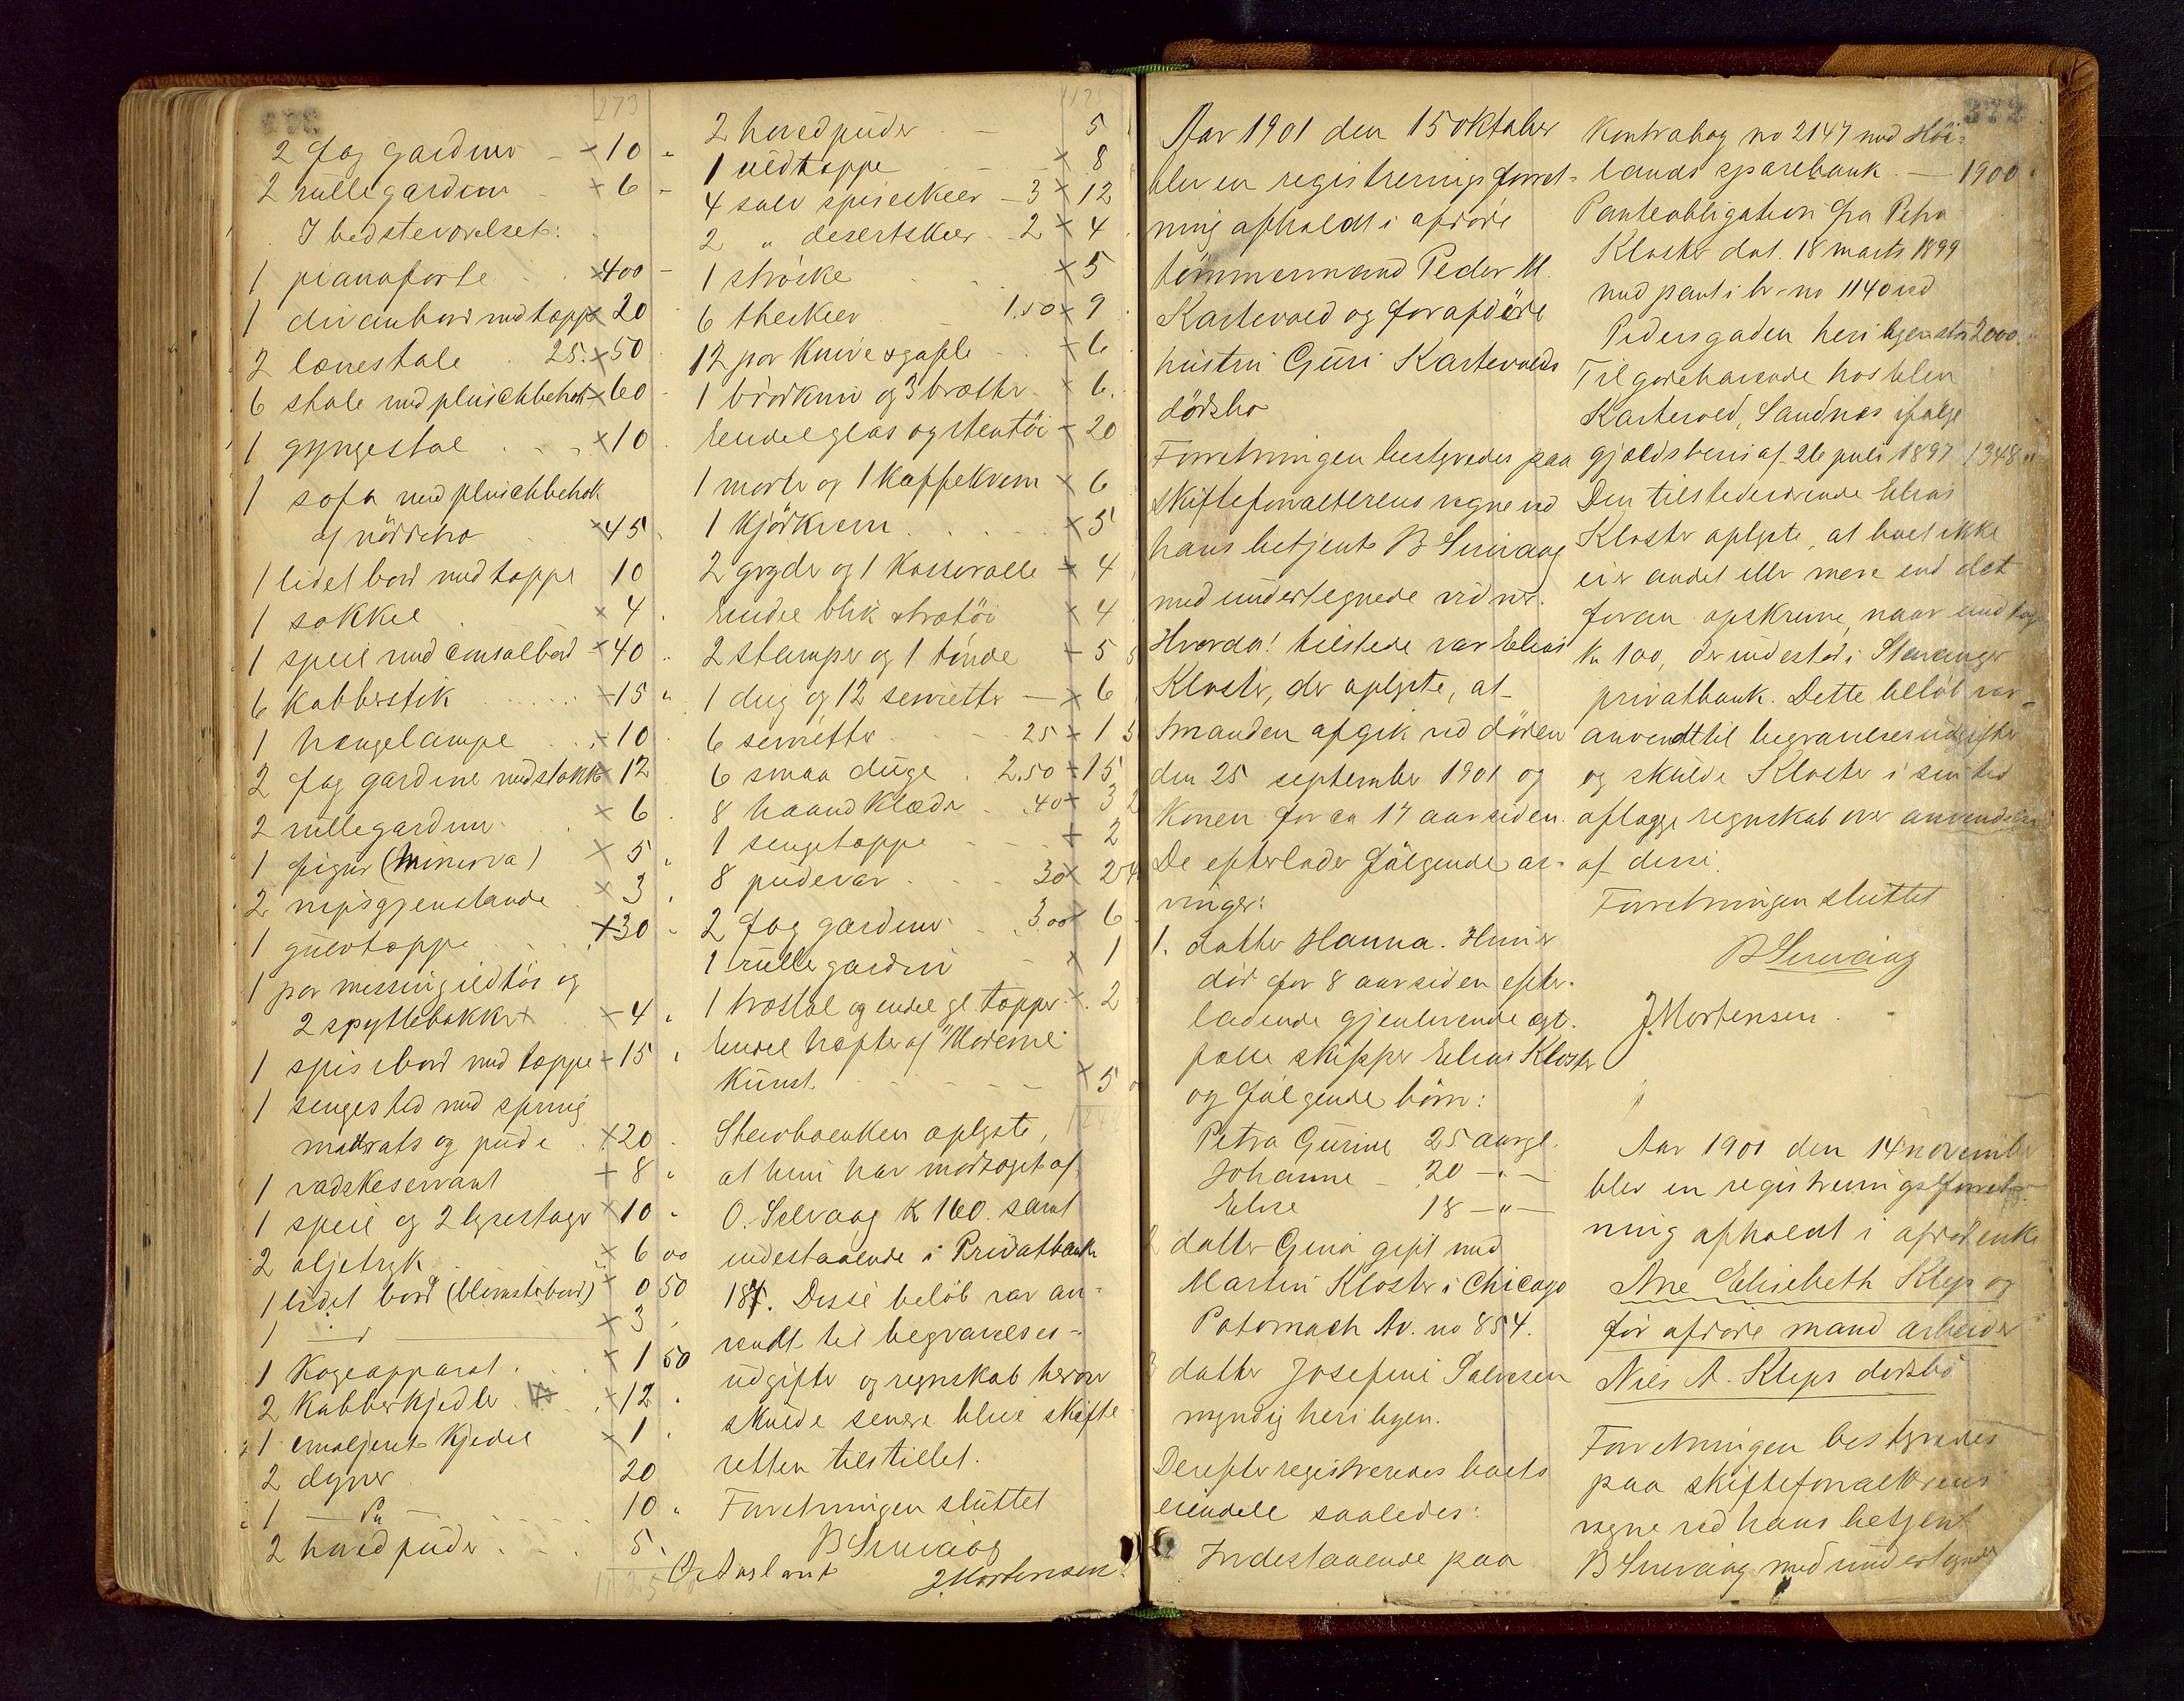 273
2 fag gardiner - × 10 "
2 rullegardiner - × 6 -
I bedsteværelset:
1 pianoforte × 400 -
1 divanbord med tæppe × 20
2 lænestole 25. × 50
6 stole med pluichbetræk × 60
1 gyngestol × 10
1 sofa med pluichbetræk
× 45
1 lidet bord med tæppe 10
1 sokkel × 4
1 speil med consolbord × 40
6 kobberstik × 15 "
1 hængelampe × 10
2 fag gardiner med stokk × 12
2 rullegardiner × 6
1 figur (Minerva) × 5
2 nipsgjenstande × 3
1 gulvtæppe × 30 "
1 par messing ildtöi og
2 spyttebakker × 4
1 spisebord med tæppe × 15
1 sengested med spring
madrats og pude × 20
1 vadskeservant × 8
1 speil og 2 lysestager × 10
2 oljetryk × 6 00
1 lidet bord (blomsterbord) × 0 50
1 — " — × 3
1 kogeapparat × 1 50
2 kobberkjedler × 12
1 emaljeret kjedel × 1
2 dyner 20
1 — " — 10
2 hovedpuder 5
2 hovedpuder - 5
1 uldtæppe × 8
4 sølv spiseskeer - 3 × 12
2 " desertskeer 2 × 4
1 ströske × 5
6 theskeer 1,50 × 9
12 par knive & gafle × 6
1 brödkniv og 3 brætter × 6
Endel glas og stentöi × 20
1 morter og 1 kaffekvern × 6
1 kjödkvern × 5
2 gryder og 1 kasserolle × 4
Endel blik & trætöi × 4
2 stamper og 1 tönde × 5
1 dug og 12 servietter — × 6
6 servietter 25 × 1 5
6 smaa duge 2.50 × 15
8 haandklæder .40 × 3 2
1 sengetæppe × 2
8 pudevar 30 × 2 4
2 fag gardiner 3.00 × 6
1 rullegardin × 1
1 træstol og endel gl. tæpper × 2
Endel hæfter af "Moderne
Kunst × 5
Stervboenken oplyste,
at hun har modtaget af
O. Selvaag K 160. samt
indestaaende i Privatbank
187. Disse belöb var an-
vendt til begravelses-
udgifter og regnskab herover
skulde senere blive skifte
retten tilstillet.
Forretningen sluttet
B Sunvaag
J. Mortensen
372
Aar 1901 den 15 oktober
blev en registreringsforret-
ning afholdt i afdöde
tömmermand Peder M.
Kartevold og forafdöde
hustru Guri Kartevolds
dödsbo
Forretningen bestyredes paa
skifteforvalterens vegne ved
hans betjent B Sunvaag
med undertegnede vidner.
Hvorda! tilstede var Elias
Kloster, der oplyste, at
manden afgik ved döden
den 25 september 1901 og
konen for ca 17 aar siden.
De efterlader fölgende ar-
vinger:
1. datter Hanna. Hun er
död for 8 aar siden efter-
ladende gjenlevende ægte-
fælle skipper Elias Kloster
og fölgende börn:
Petra Gurine 25 aar gl.
Johanne - 20 — " —
Elise 18 — " —
2 datter Gina gift med
Martin Kloster i Chicago
Potomach Av. no 854.
3 datter Josefine Salvesen
myndig her i byen.
Derefter registreredes boets
eiendele saaledes:
Indestaaende paa
Kontrabog no 2147 med Höi-
lands sparebank — 1900
Panteobligation fra Petra
Kloster dat. 18 marts 1899
med pant i br. no 1140 ved
Pedersgaden her i byen stor 2000
Tilgodehavende hos
Kartevold, Sandnes ifølge
gjældsbevis af 26 juli 1897 1348 "
Den tilstedeværende Elias
Kloster oplyste, at boet ikke
eier andet eller mere end det
foran opskrevne, naar undtages
kr 100, der indestod i Stavanger
privatbank. Dette belöb var
anvendt til begravelsesudgifter
og skulde Kloster i sin tid
aflægge regnskab over anvendelsen
af disse.
Forretningen sluttet
B Sunvaag
J. Mortensen.
Aar 1901 den 14 november
blev en registreringsforret-
ning afholdt i afdöd enke
Ane Elisebeth Klep og
för afdöde mand arbeider
Niels A. Kleps dödsbo
Forretningen bestyredes
paa skifteforvalterens
vegne ved hans betjent
B Sunvaag med undertegnede